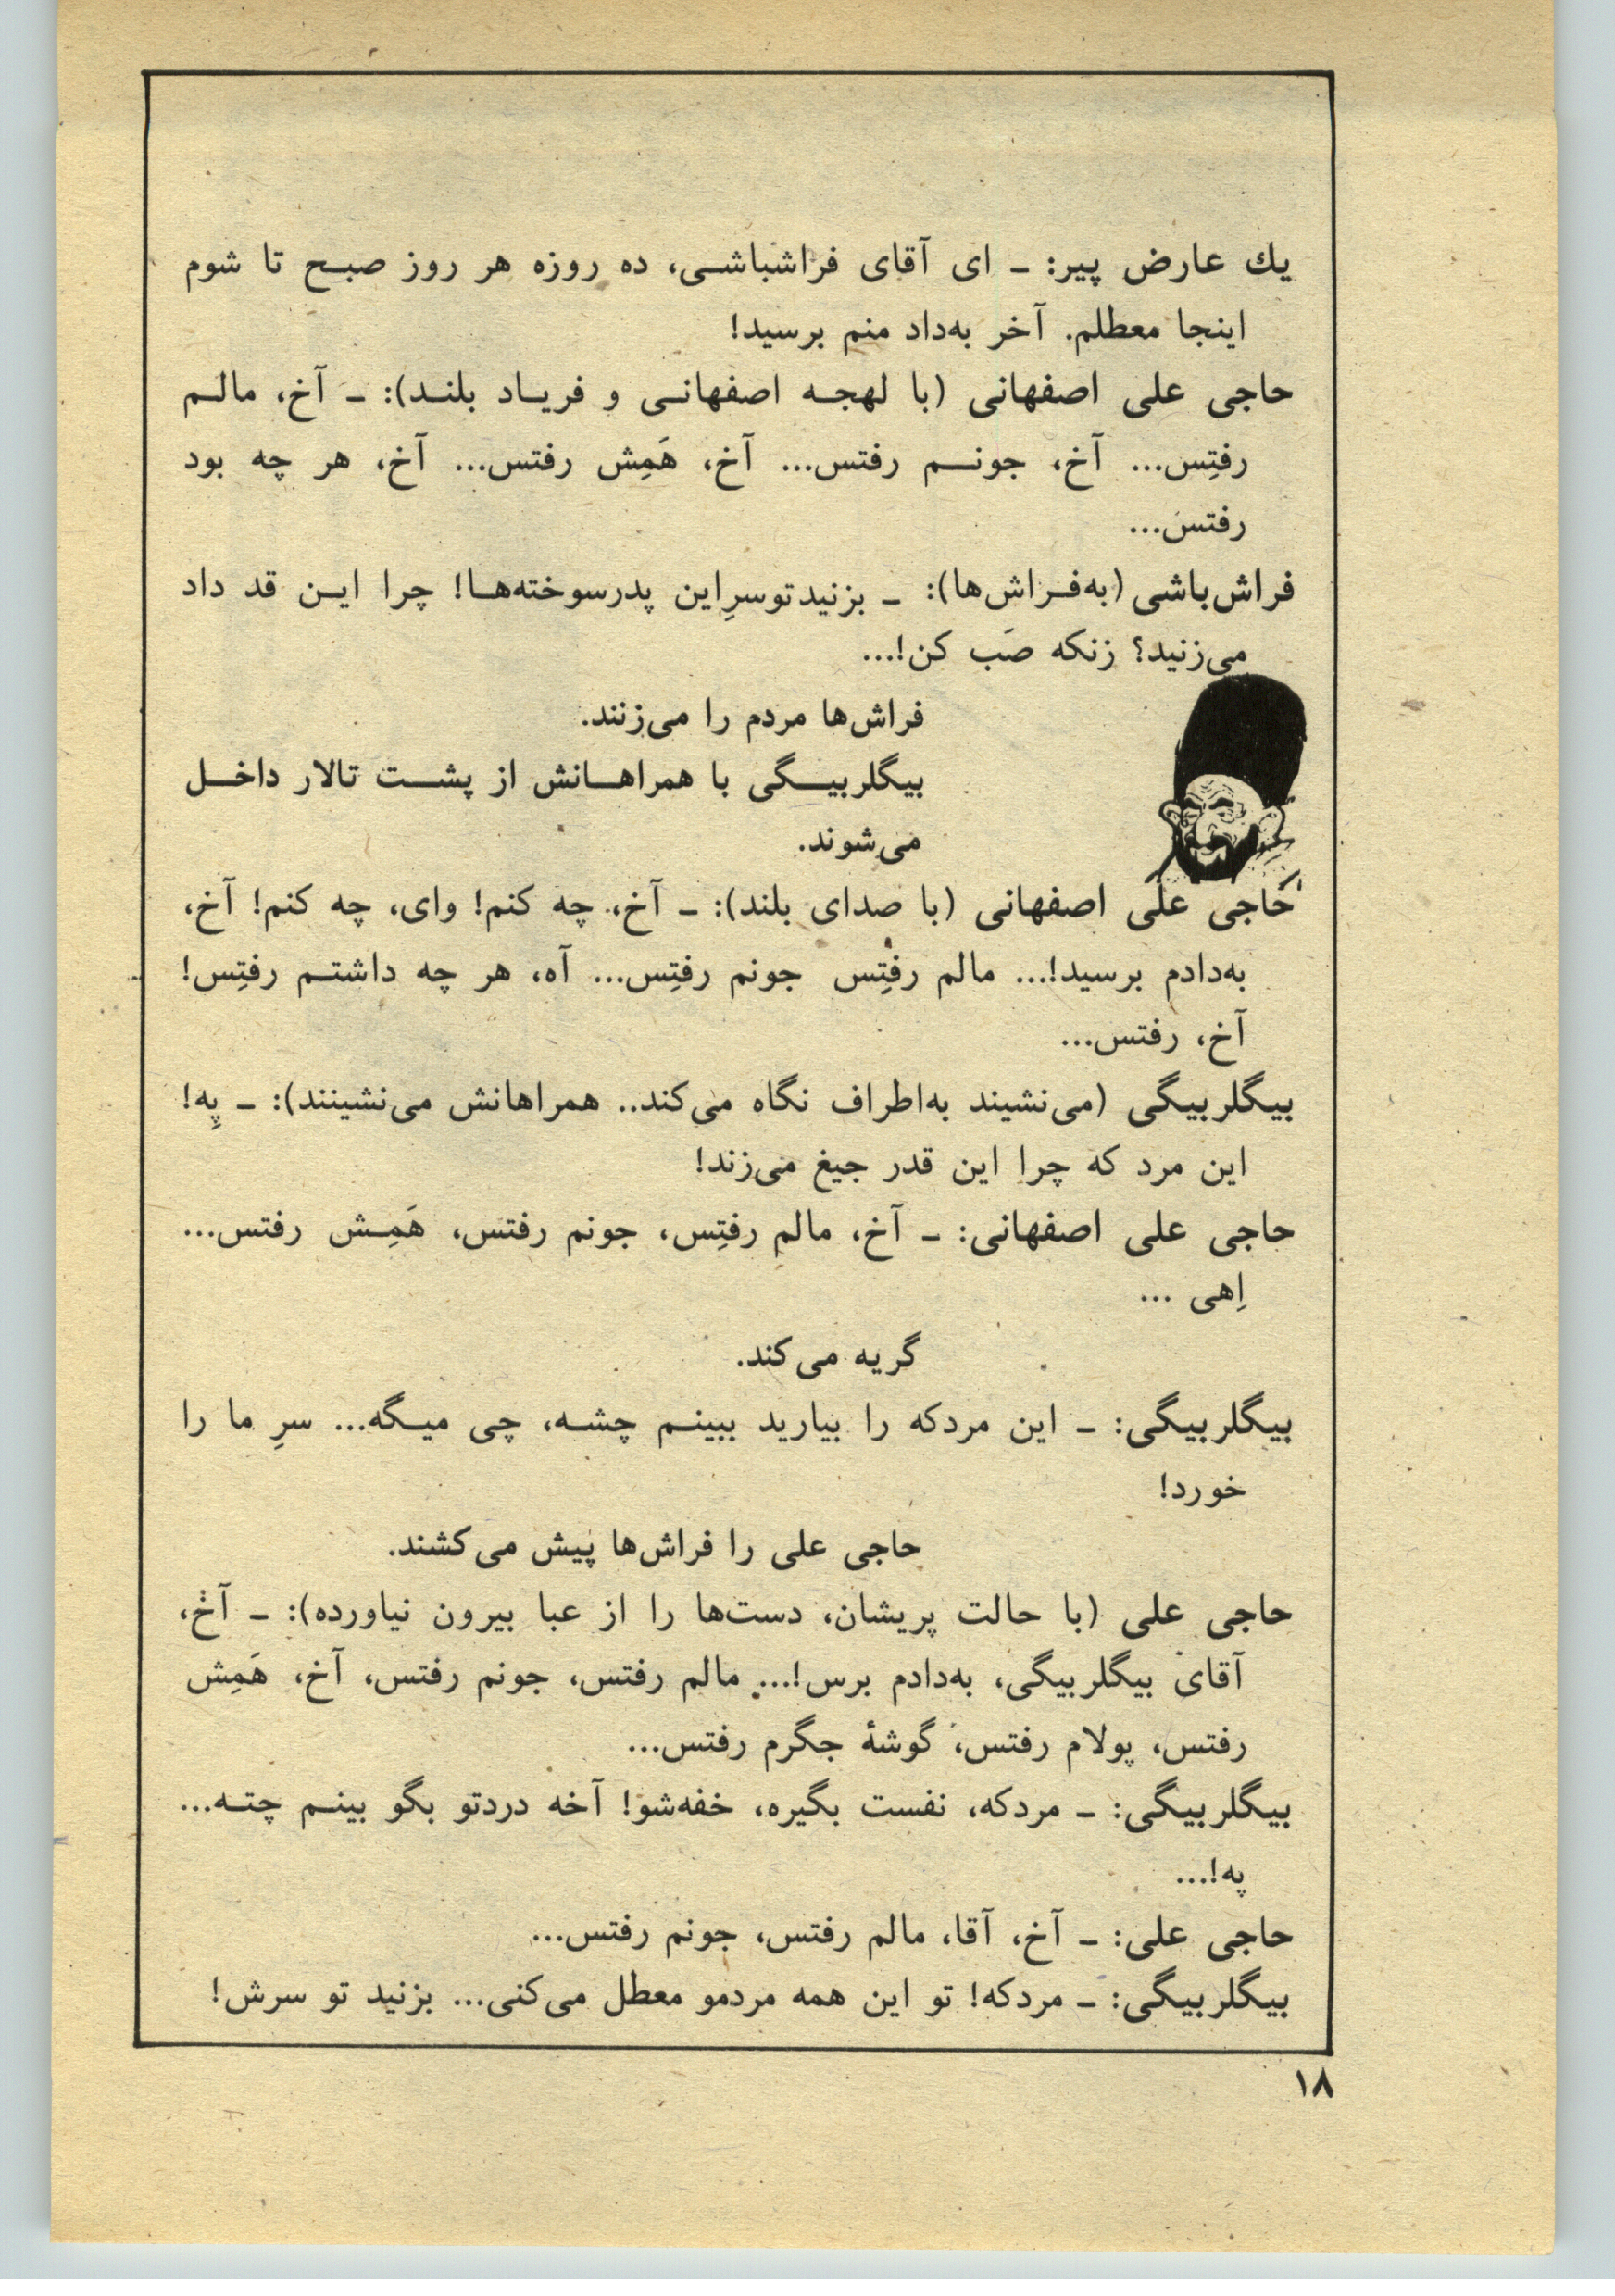 یك عارض پیر: ـ ای آقای فراشباشی، ده روزه هر روز صبح تا شوم
اینجا معطلم. آخر به‌داد منم برسید!
حاجی علی اصفهانی (با لهجه اصفهانی و فریاد بلند): ـ آخ، مالم
رفتِس... آخ، جونم رفتس... آخ، هَمِش رفتس... آخ، هر چه بود
رفتس...
فراش‌باشی (به‌فراش‌ها): ـ بزنید تو سرِ این پدرسوخته‌ها! چرا این قد داد
می‌زنید؟ زنکه صَب کن!...
فراش‌ها مردم را می‌زنند.
بیگلربیگی با همراهانش از پشت تالار داخل
می‌شوند.
حاجی علی اصفهانی (با صدای بلند): ـ آخ، چه کنم! وای، چه کنم! آخ،
به‌دادم برسید!... مالم رفتِس جونم رفتِس... آه، هر چه داشتم رفتِس!
آخ، رفتس...
بیگلربیگی (می‌نشیند به‌اطراف نگاه می‌کند.. همراهانش می‌نشینند): ـ پِه!
این مرد که چرا این قدر جیغ می‌زند!
حاجی علی اصفهانی: ـ آخ، مالم رفتِس، جونم رفتس، هَمِش رفتس...
اِهی ...
گریه می‌کند.
بیگلربیگی: ـ این مردکه را بیارید ببینم چشه، چی میگه... سرِ ما را
خورد!
حاجی علی را فراش‌ها پیش می‌کشند.
حاجی علی (با حالت پریشان، دست‌ها را از عبا بیرون نیاورده): ـ آخ،
آقای بیگلربیگی، به‌دادم برس!... مالم رفتس، جونم رفتس، آخ، هَمِش
رفتس، پولام رفتس، گوشهٔ جگرم رفتس...
بیگلربیگی: ـ مردکه، نفست بگیره، خفه‌شو! آخه دردتو بگو بینم چته...
په!...
حاجی علی: ـ آخ، آقا، مالم رفتس، جونم رفتس...
بیگلربیگی: ـ مردکه! تو این همه مردمو معطل می‌کنی... بزنید تو سرش!
۱۸